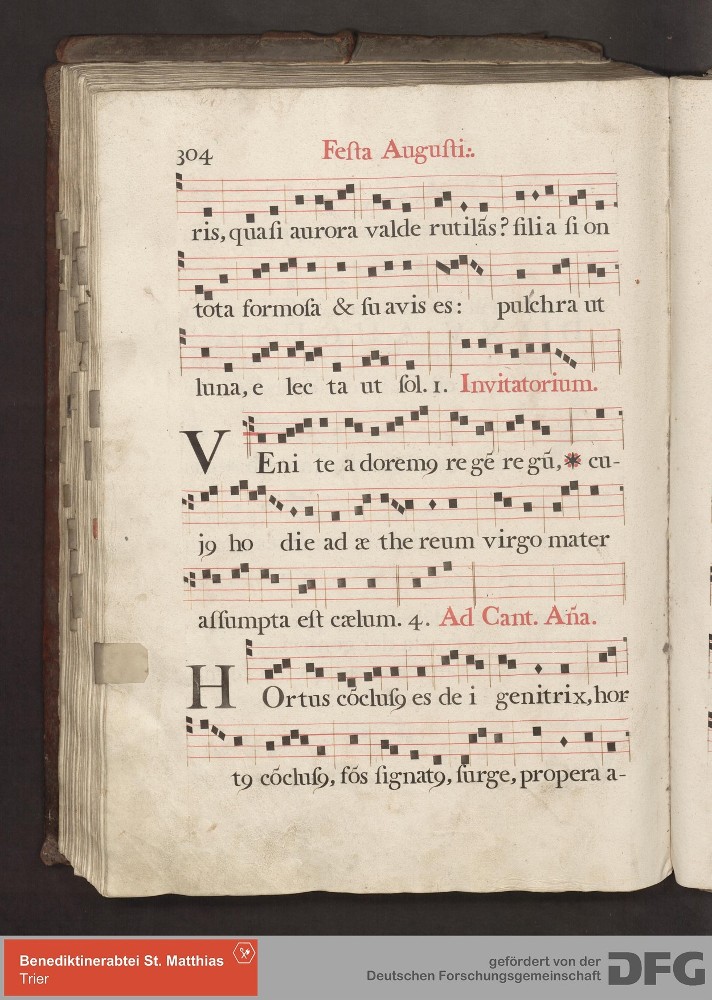 304 Feſta Auguſti:.
ris, quaſi aurora valde rutilãs? filia ſi on
tota formoſa & ſu avis es: pulchra ut
luna, e lec ta ut ſol. 1. Invitatorium.
VEni te a doremꝯ re gẽ re gũ, * cu-
jꝯ ho die ad æ the reum virgo mater
aſſumpta eſt cælum. 4. Ad Cant. Aña.
HOrtus cõcluſꝯ es de i genitrix, hor
tꝯ cõcluſꝯ, fõs ſignatꝯ, ſurge, propera a-
Benediktinerabtei St. Matthias
Trier
gefördert von der
Deutschen Forschungsgemeinschaft
DFG